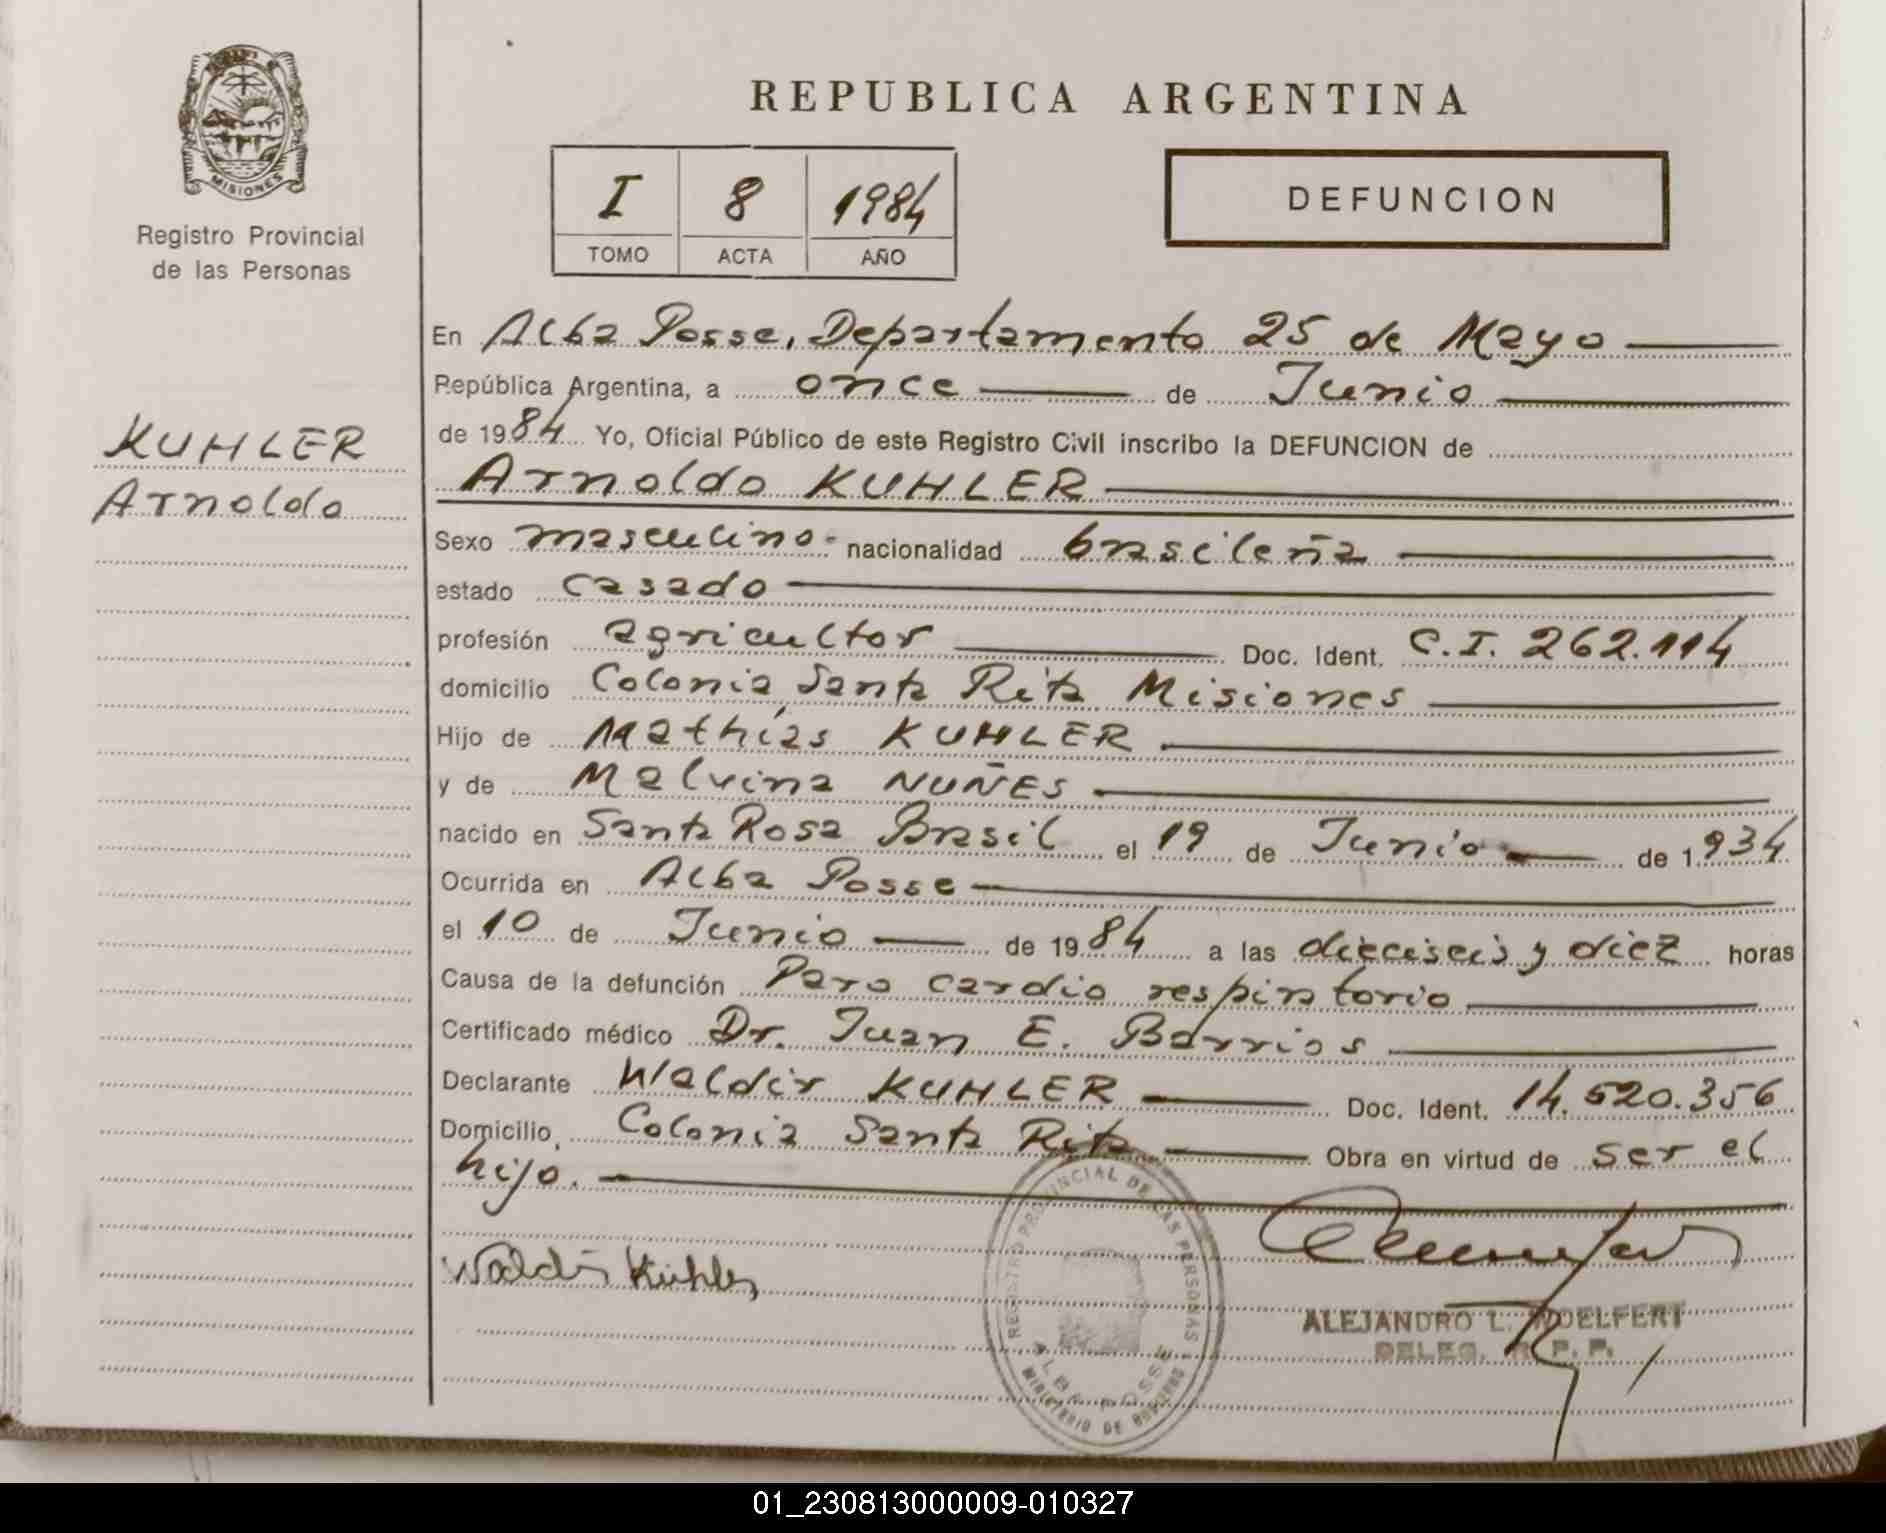 REPUBLICA ARGENTINA
MISIONES
Registro Provincial
de las Personas
I 8 1984
TOMO ACTA AÑO
DEFUNCION
KUHLER
Arnoldo
En Alba Posse, Departamento 25 de Mayo
República Argentina, a once de Junio
de 1984 Yo, Oficial Público de este Registro Civil inscribo la DEFUNCION de
Arnoldo KUHLER
Sexo masculino nacionalidad brasileña
estado casado
profesión agricultor Doc. Ident. C.I. 262.114
domicilio Colonia Santa Rita Misiones
Hijo de Mathías KUHLER
y de Malvina NUÑES
nacido en Santa Rosa Brasil el 19 de Junio de 1934
Ocurrida en Alba Posse
el 10 de Junio de 1984 a las dieciseis y diez horas
Causa de la defunción Paro cardio respiratorio
Certificado médico Dr. Juan E. Barrios
Declarante Waldir KUHLER Doc. Ident. 14.520.356
Domicilio Colonia Santa Rita Obra en virtud de ser el
hijo.
Waldir Kuhler
REGISTRO PROVINCIAL DE LAS PERSONAS
ALBA POSSE
MINISTERIO DE GOBIERNO
ALEJANDRO L. WOELFERT
DELEG. R. P. P.
01_230813000009-010327